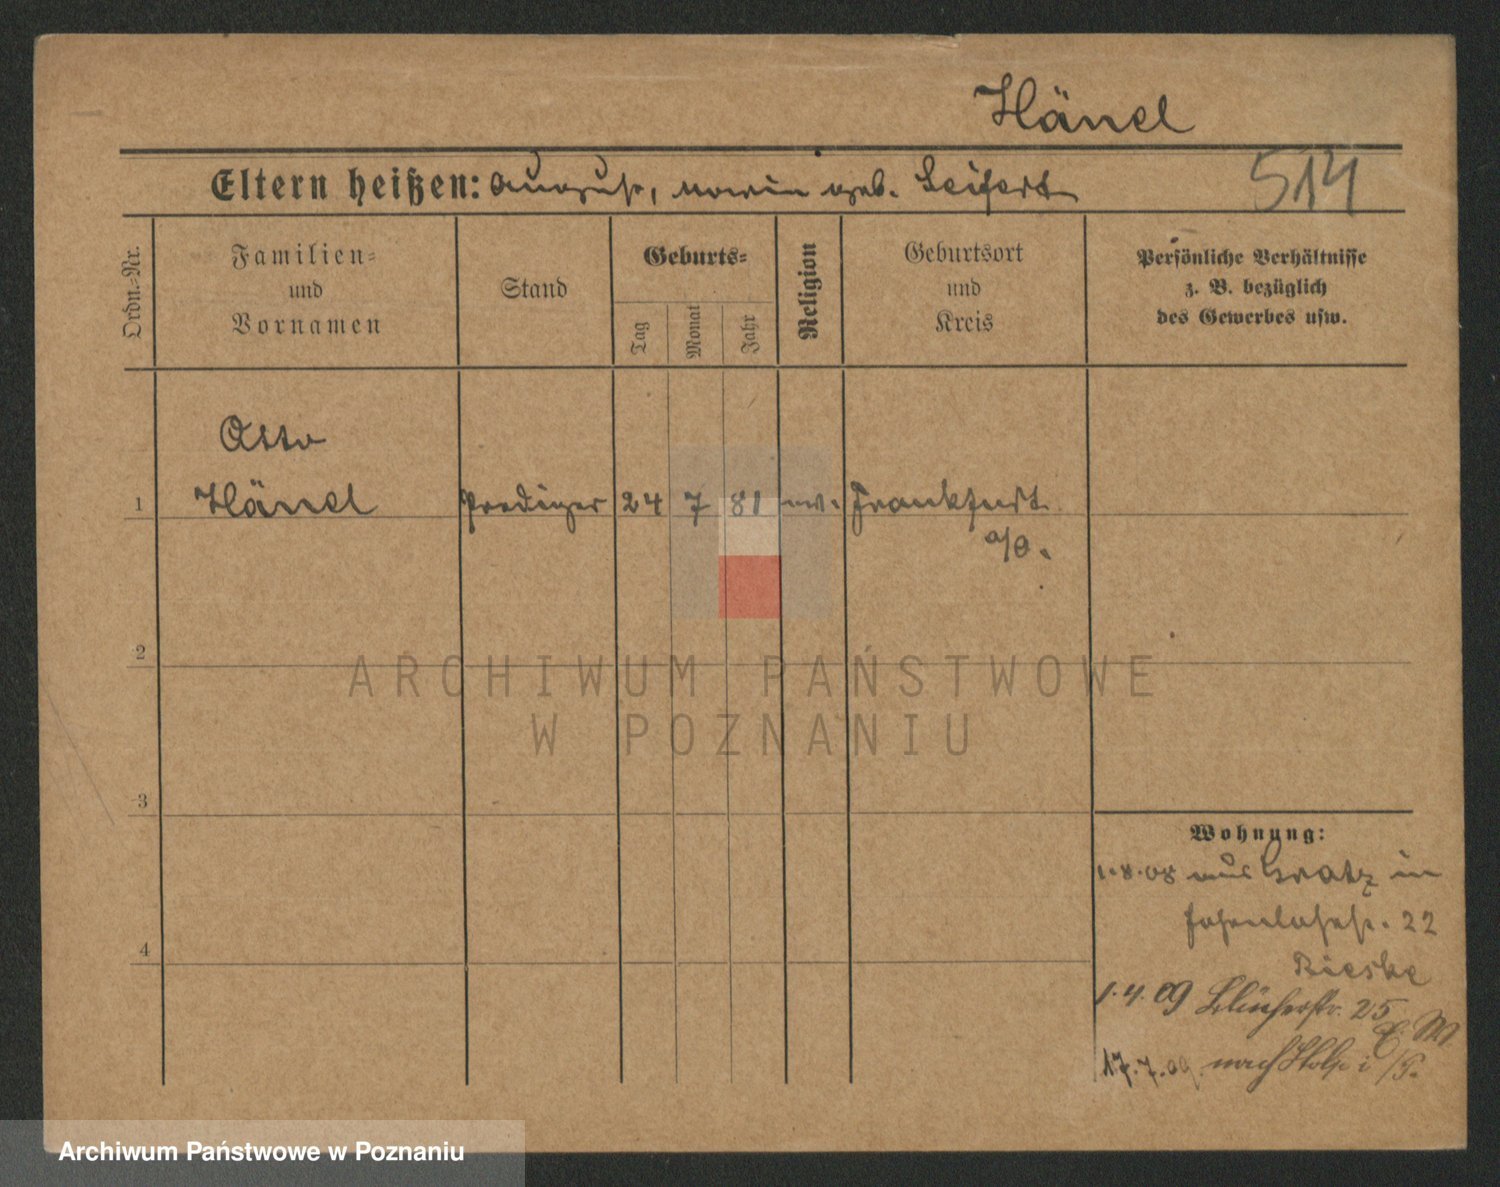 Hänel
Eltern heißen: August, Marie geb. Seifert
514
Ordn.-Nr.
Familien-
und
Vornamen
Stand
Geburts-
Tag
Monat
Jahr
Religion
Geburtsort
und
Kreis
Persönliche Verhältnisse
z. B. bezüglich
des Gewerbes usw.
Otto
1 Hänel Prediger 24 7 81 ev. Frankfurt
a/O.
2
ARCHIWUM PAŃSTWOWE
W POZNANIU
3
Wohnung:
1.8.08 aus Gratz in
22
4
Rieske
1.4.09 Blücherstr. 25
17.7.09. nach Stolp i/P.
Archiwum Państwowe w Poznaniu